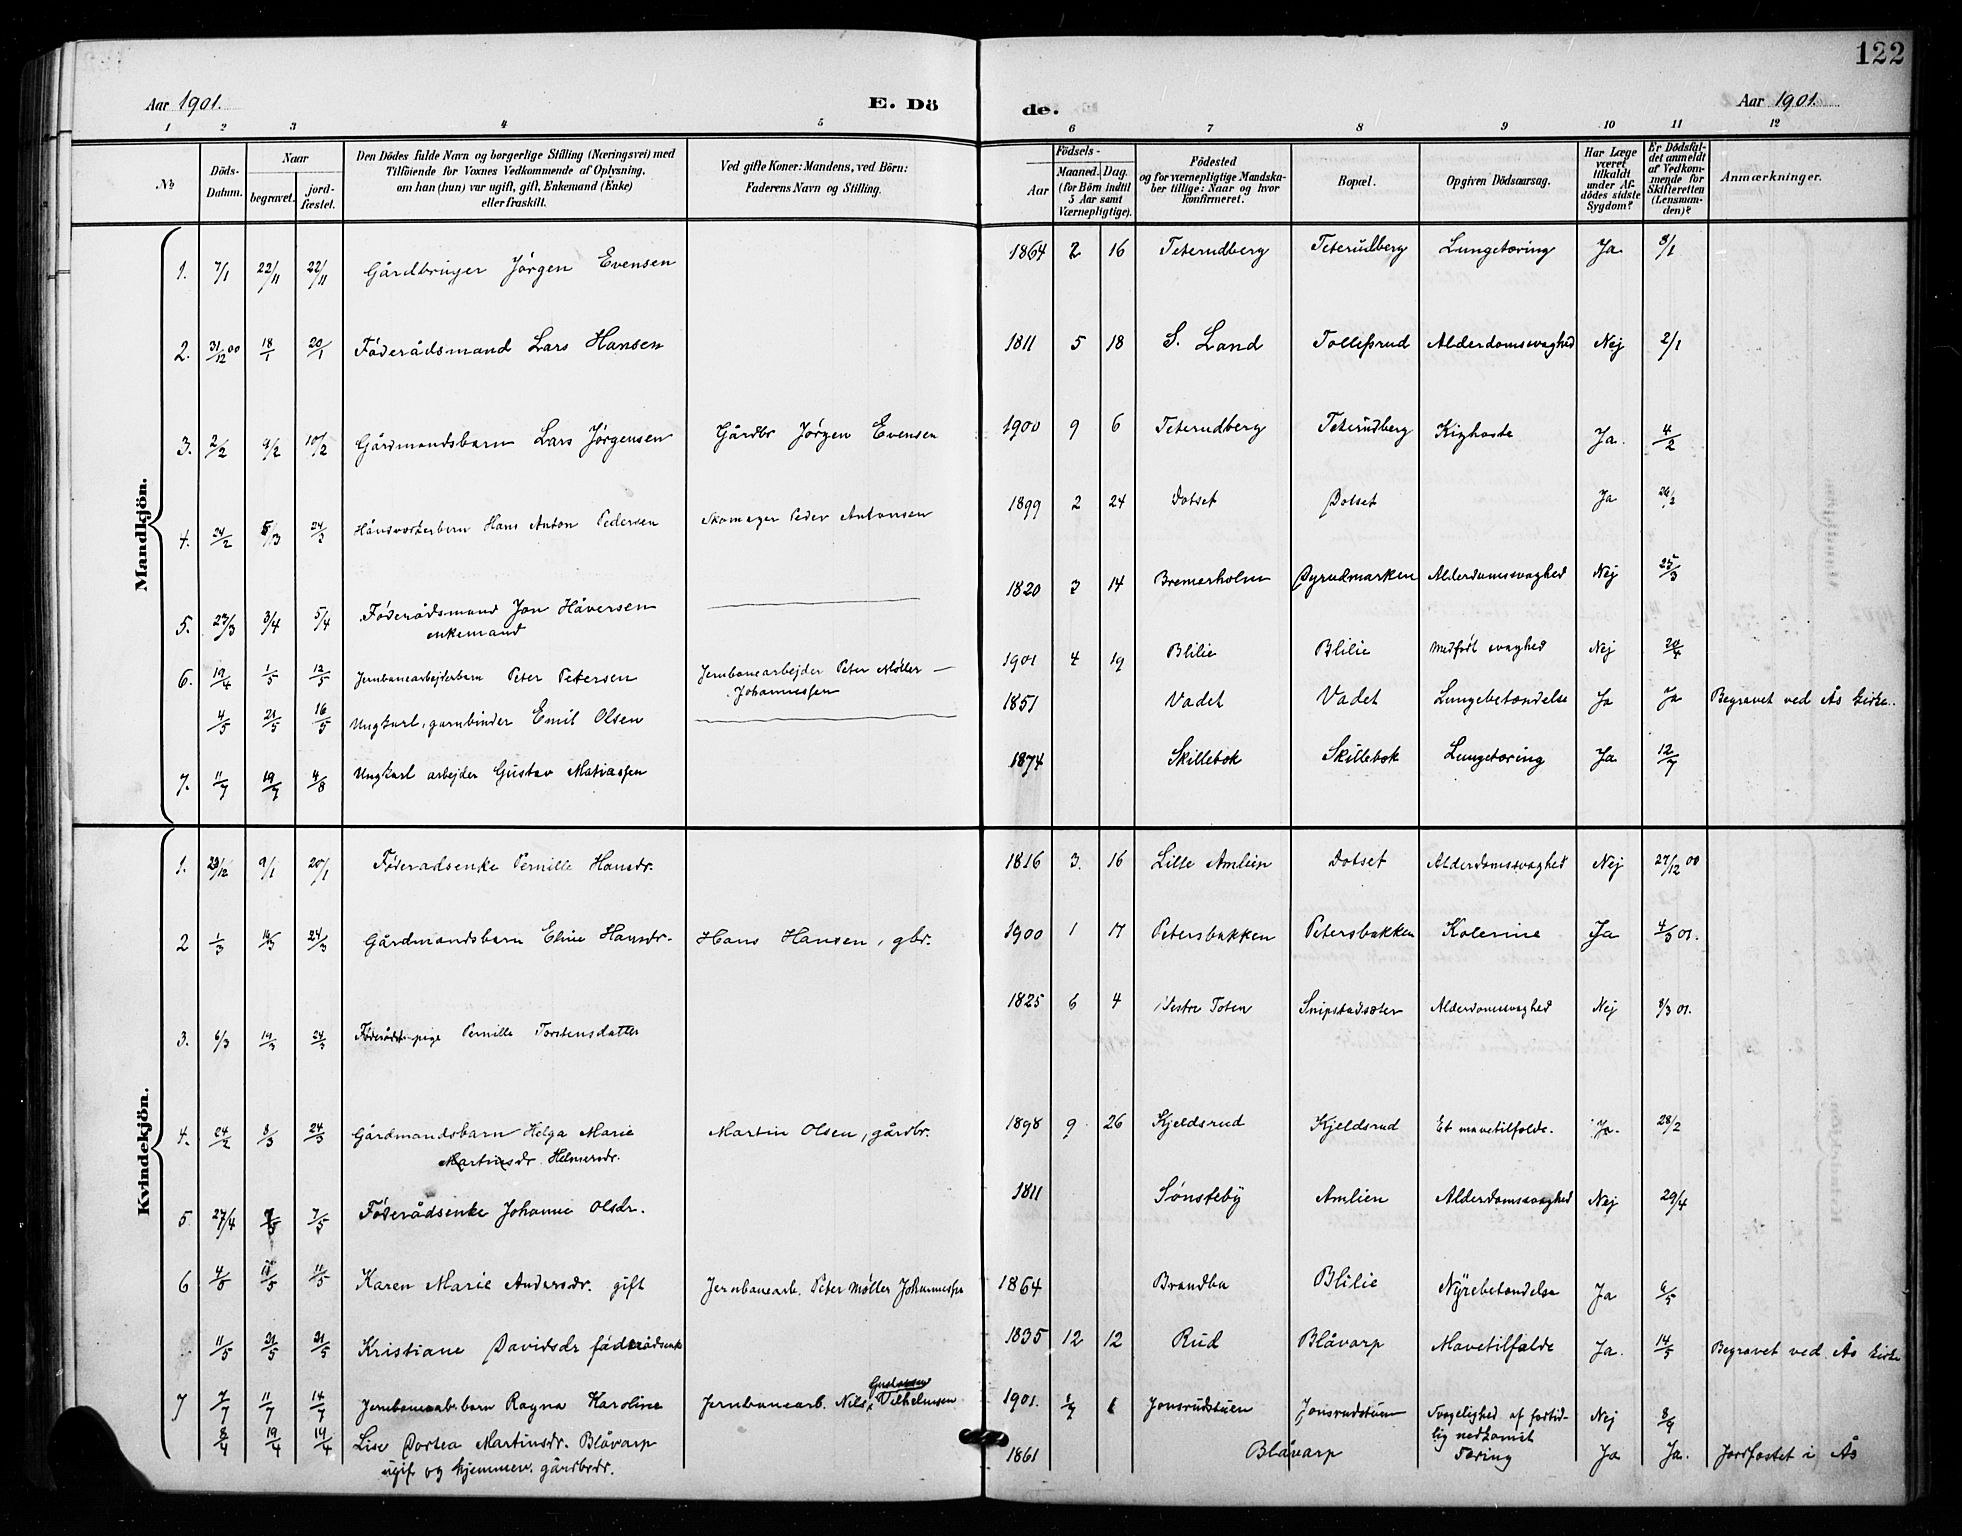 122
Aar 1901.
E. Dö
de.
Aar 1901.
1 2 3 4 5 6 7 8 9 10 11 12
No
Döds-Datum.
Naar
begravet.
jord-fæstet.
Den Dödes fulde Navn og borgerlige Stilling (Næringsvei) med
Tilföiende for Voxnes Vedkommende af Oplysning,
om han (hun) var ugift, gift, Enkemand (Enke)
eller fraskilt.
Ved gifte Koner: Mandens, ved Börn:
Faderens Navn og Stilling.
Födsels-
Aar
Maaned. Dag.
(for Börn indtil
5 Aar samt
Værnepligtige).
Födested
og for værnepligtige Mandska-
ber tillige: Naar og hvor
konfirmeret.
Bopæl.
Opgiven Dödsaarsag.
Har Læge
været
tilkaldt
under Af-
dödes sidste
Sygdom?
Er Dödsfal-
det anmeldt
af Vedkom-
mende for
Skifteretten
(Lensman-
den)?
Anmærkninger.
Mandkjön.
1. 7/1 22/11 22/11 Gårdbruger Jørgen Evensen 1864 2 16 Teterudberg Teterudberg Lungetæring Ja 8/1
2. 31/12 00 18/1 20/1 Føderådsmand Lars Hansen 1811 5 18 S. Land Tollefsrud Alderdomssvaghed Nej 2/1
3. 2/2 9/2 10/2 Gårdmandsbarn Lars Jørgensen Gårdbr Jørgen Evensen 1900 9 6 Teterudberg Teterudberg Kighoste Ja. 4/2
4. 24/2 5/3 24/3 Hans Anton Pedersen Skomager Peder Antonsen 1899 2 24 Dotset Dotset Ja 26/2
5. 23/3 3/4 5/4 Føderådsmand Jon Håversen 1820 3 14 Bremerholm Dyrudmarken Alderdomssvaghed Nej 25/3
enkemand
6. 19/4 1/5 12/5 Jernbanearbejderbarn Peter Petersen Jernbanearbejder Peter Møller 1901 4 19 Blilie Blilie Medfødt svaghed Nej 20/4
Johannessen
4/5 21/5 16/5 Ungkarl, garnbinder Emil Olsen 1851 Vadet Vadet Lungebetændelse Ja Ja Begravet ved Ås kirke.
7. 11/7 19/7 4/8 Ungkarl arbejder Gustav Matiassen 1874 Skillebok Skillebok Lungetæring Ja 12/7
Kvindekjön.
1. 23/12 9/1 20/1 Føderadsenke Pernille Hansdr. 1816 3. 16 Lille Amlien Dotset Alderdomssvaghed Nej 27/12 00
2 1/3 14/3 24/3 Gårdmandsbarn Eline Hansdr. Hans Hansen, gbr. 1900 1 17 Petersbakken Petersbakken Kolerine Ja 4/3 01.
3. 6/3 14/3 24/3 Føderådspige Pernille Torstensdatter 1825 6 4 Vestre Toten Snipstadsæter Alderdomssvaghed Nej 8/3 01.
4. 24/2 8/3 24/3 Gårdmandsbarn Helga Marie Martin Olsen, gårdbr. 1898 9 26 Kjeldsrud Kjeldsrud Et mavetilfælde. Ja. 28/2
Martinsdr. Helmersdr.
5 27/4 7/5 7/5 Føderådsenke Johanne Olsdr. 1811 Sønsteby Amlien Alderdomssvaghed Nej 29/4
6 4/5 11/5 11/5 Karen Marie Andersdr. gift Jernbanearb. Peter Møller Johannessen 1864 Brandbu Blilie Nyrebetændelse Ja 6/5
11/5 21/5 21/5 Kristiane Davidsdr føderådsenke 1835 12 12 Rud Blåvarp Mavetilfælde Ja. 14/5 Begravet ved Ås kirke
7 7/7 11/7 14/7 Jernbanearbbarn Ragna Karoline Jernbanearb. Nils Gustavsen Vilhelmsen 1901. 1 Jonsrudstuen Jonsrudstuen Svagelighed af fortid-
lig nedkomst Nej 8/7
8/4 19/4 19/4 Lise Dortea Martinsdr. Blåvarp 1861 Blåvarp Tæring Ja Ja. Jordfæstet i Ås
ugift og hjemmev. gårdbrdr.